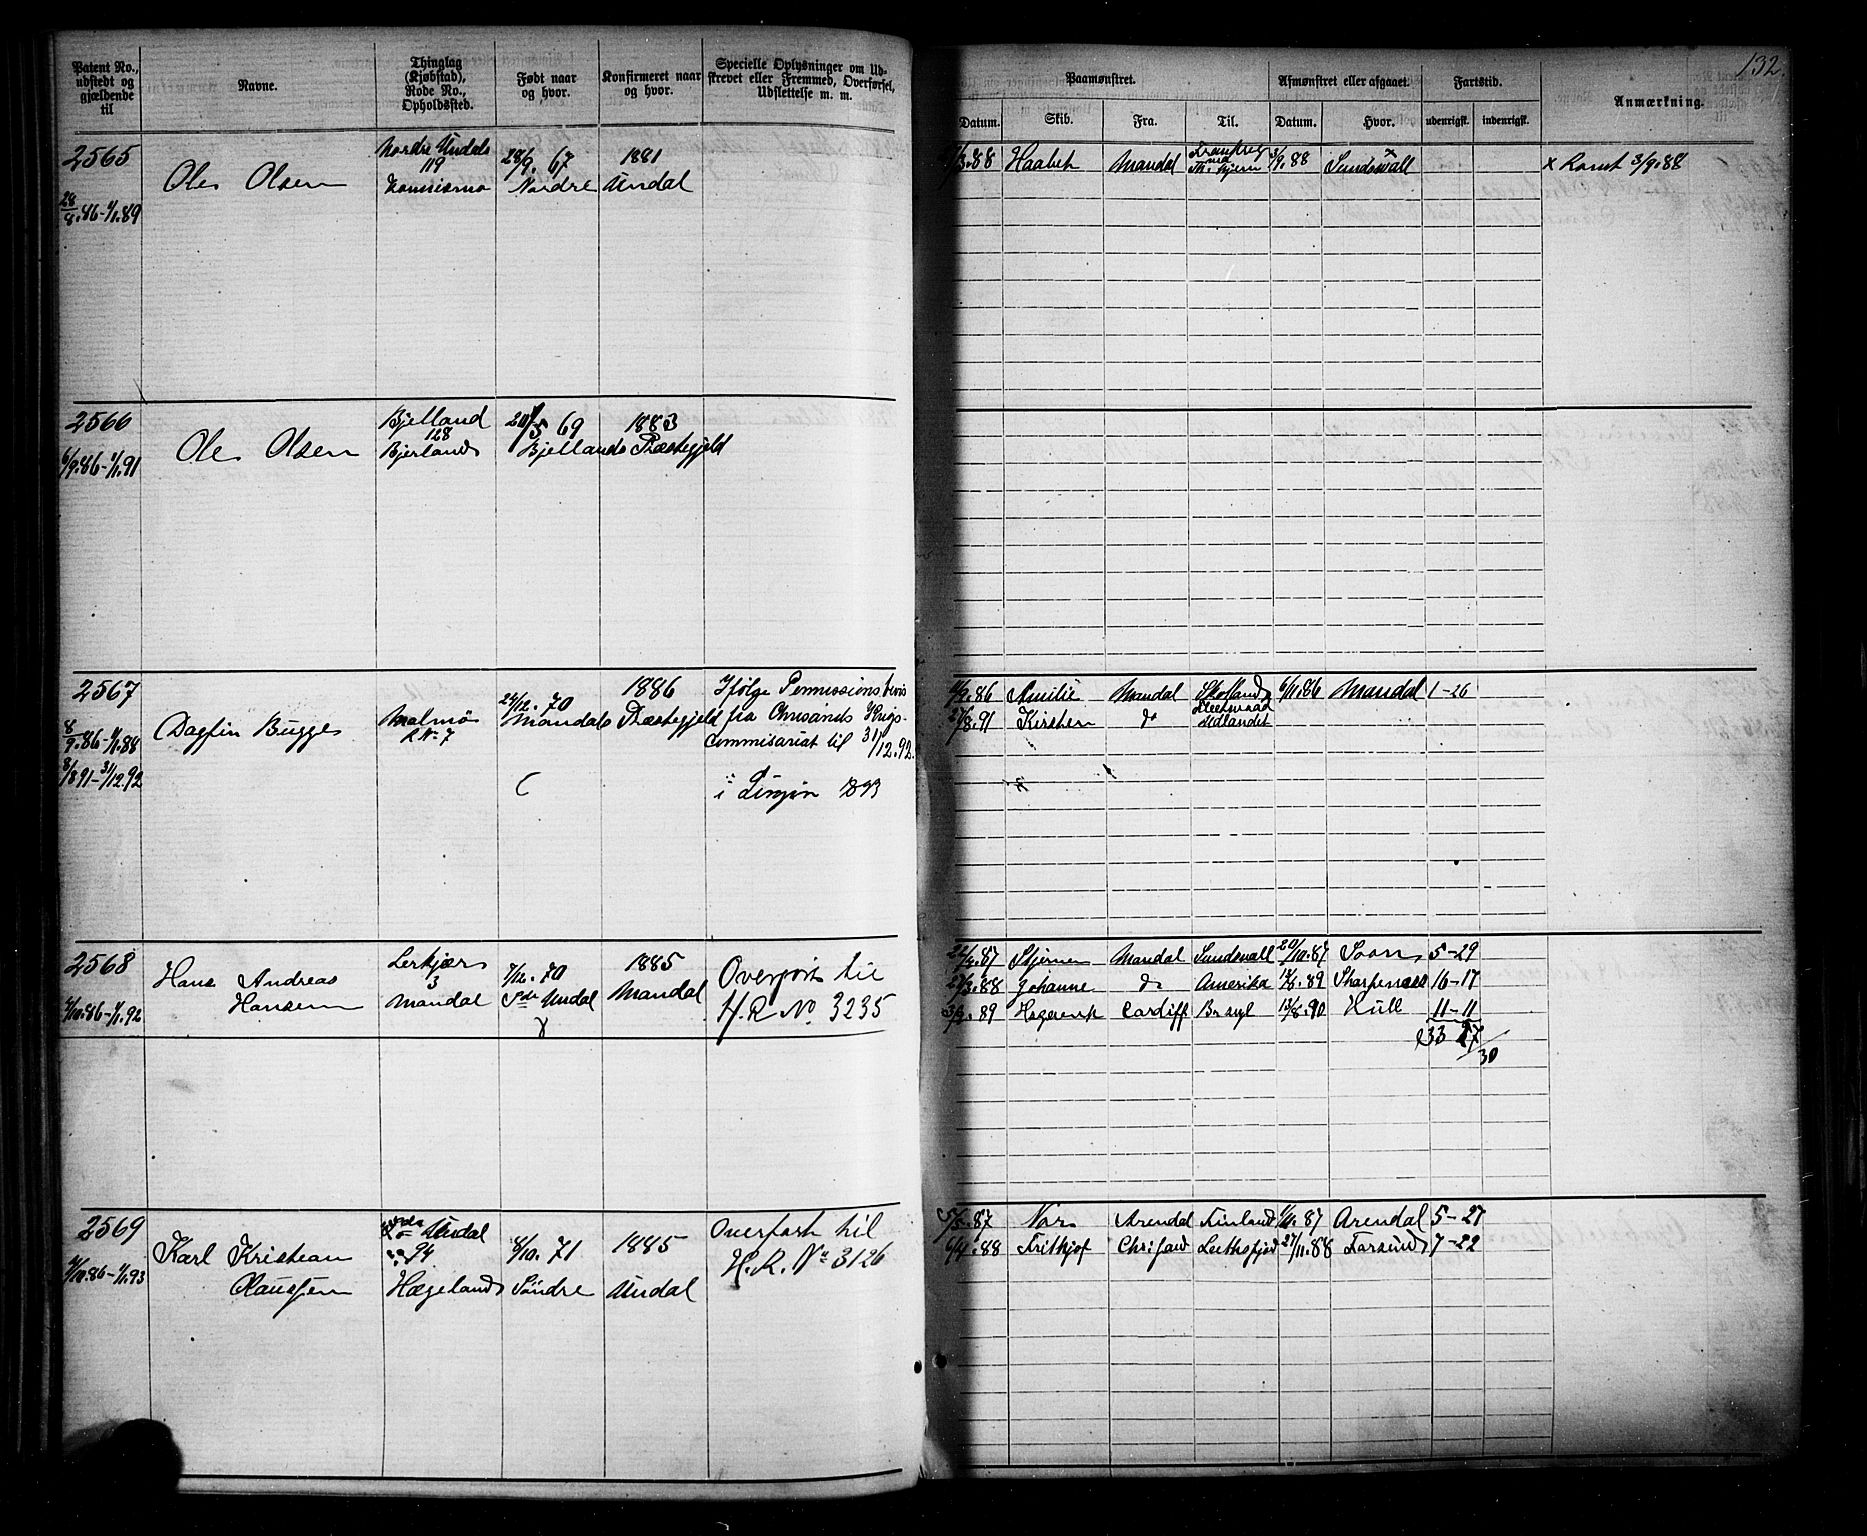 132.
Patent No., udstedt og gjældende til
Navne.
Thinglag (Kjøbstad), Rode No., Opholdssted.
Født naar og hvor.
Konfirmeret naar og hvor.
Specielle Oplysninger om Udskrevet eller Fremmed, Overførsel, Udslettelse m. m.
Paamønstret.
Afmønstret eller afgaaet.
Fartstid.
Anmærkning.
Datum.
Skib.
Fra.
Til.
Datum.
Hvor.
udenrigsk.
indenrigsk.
2565
28/8.86-1/1.89
Ole Olsen
Nordre Undals
119
28/9. 67
Nordre
1881
Undal
3.88 Haabet Mandal 3/9.88 Sundswall x
x Rømt 3/9.88
2566
6/9.86-1/1.91
Ole Olsen
Bjelland
128
Bjerlands
20/5 69
1883
Bjellands Præstegjeld
2567
8/9.86-1/1.88
8/8 91-31/12.92
Dagfin Bugge
Malmø
R No 7
24/12. 70
1886
Mandals Præstegjeld
Ifølge Permissionsbevis
fra Chrisands Krigs-
commisariat til 31/12.92.
i Linjen 1893
9.86 Amilie Mandal Skotland 6/11.86 Mandal 1-26
27/8.91 Kirsten do Udlandet
2568
4/10.86-1/1.92
Hans Andreas
Hansen
Lerkjær
3
Mandal
7/12. 70
Sdr Undal
1885
Mandal
Overført til
H.R No. 3235
.87 Stjernen Mandal Sundswall 20/10.87 Soon 5-29
3.88 Johanne do Amerika .89 Sharpeness 16-17
.89 Cardiff Brasyl 12/8.90 Hull 11-11
33 27/30
2569
4/10.86-1/1.93
Karl Kristian
Claussen
Undal
94
Hægeland
8/10. 71
Søndre
1885
Undal
Overført til
H.R. No 3126
5/5.87 Nor Arendal Finland 1/11.87 Arendal 5-27
6/4.88 Frithjof Chrisand Leithsfjord 27/11.88 Farsund 7-22